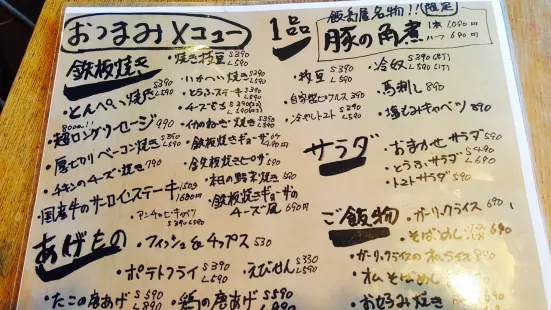 おつまみメニュー
鉄板焼き
・とんぺい焼き S390 L590
800m!! ・超ロングソーセージ 990
・厚切りベーコン焼き S390 L590
・チキンのチーズ焼き 790
・国産牛のサーロインステーキ 150g 1680円
・アンチョビキャベツ S390 L590
・焼き枝豆 S390 L590
・いかへい焼き S390 L590
・とうふステーキ S390 L590
・チーズもち
・イカのねぎ焼き S390 L590
・鉄板焼きギョーザ
・鉄板焼ピザ 590
・本日の野菜焼き 590
・鉄板焼きギョーザのチーズ風 690円
あげもの
・フィッシュ&チップス 530
・ポテトフライ S390 L590
・えびせん S330 L590
・たこの唐あげ S590 L890
・鶏の唐あげ S590 L890
1品
名物!!(限定)
豚の角煮 1本 1,090円 ハーフ 690円
・枝豆 S390 L590
・自家製ピクルス 390
・冷やしトマト S290 L590
・冷奴 S390 L590
・馬刺し 890
・塩もみキャベツ 390
サラダ
・おまかせサラダ 590
・とうふサラダ S490 L690
・トマトサラダ 590
ご飯物
・ガーリックライス 690
・そばめし 690
・ガーリックライスのオムライス
・オムそばめし
・お好み焼き